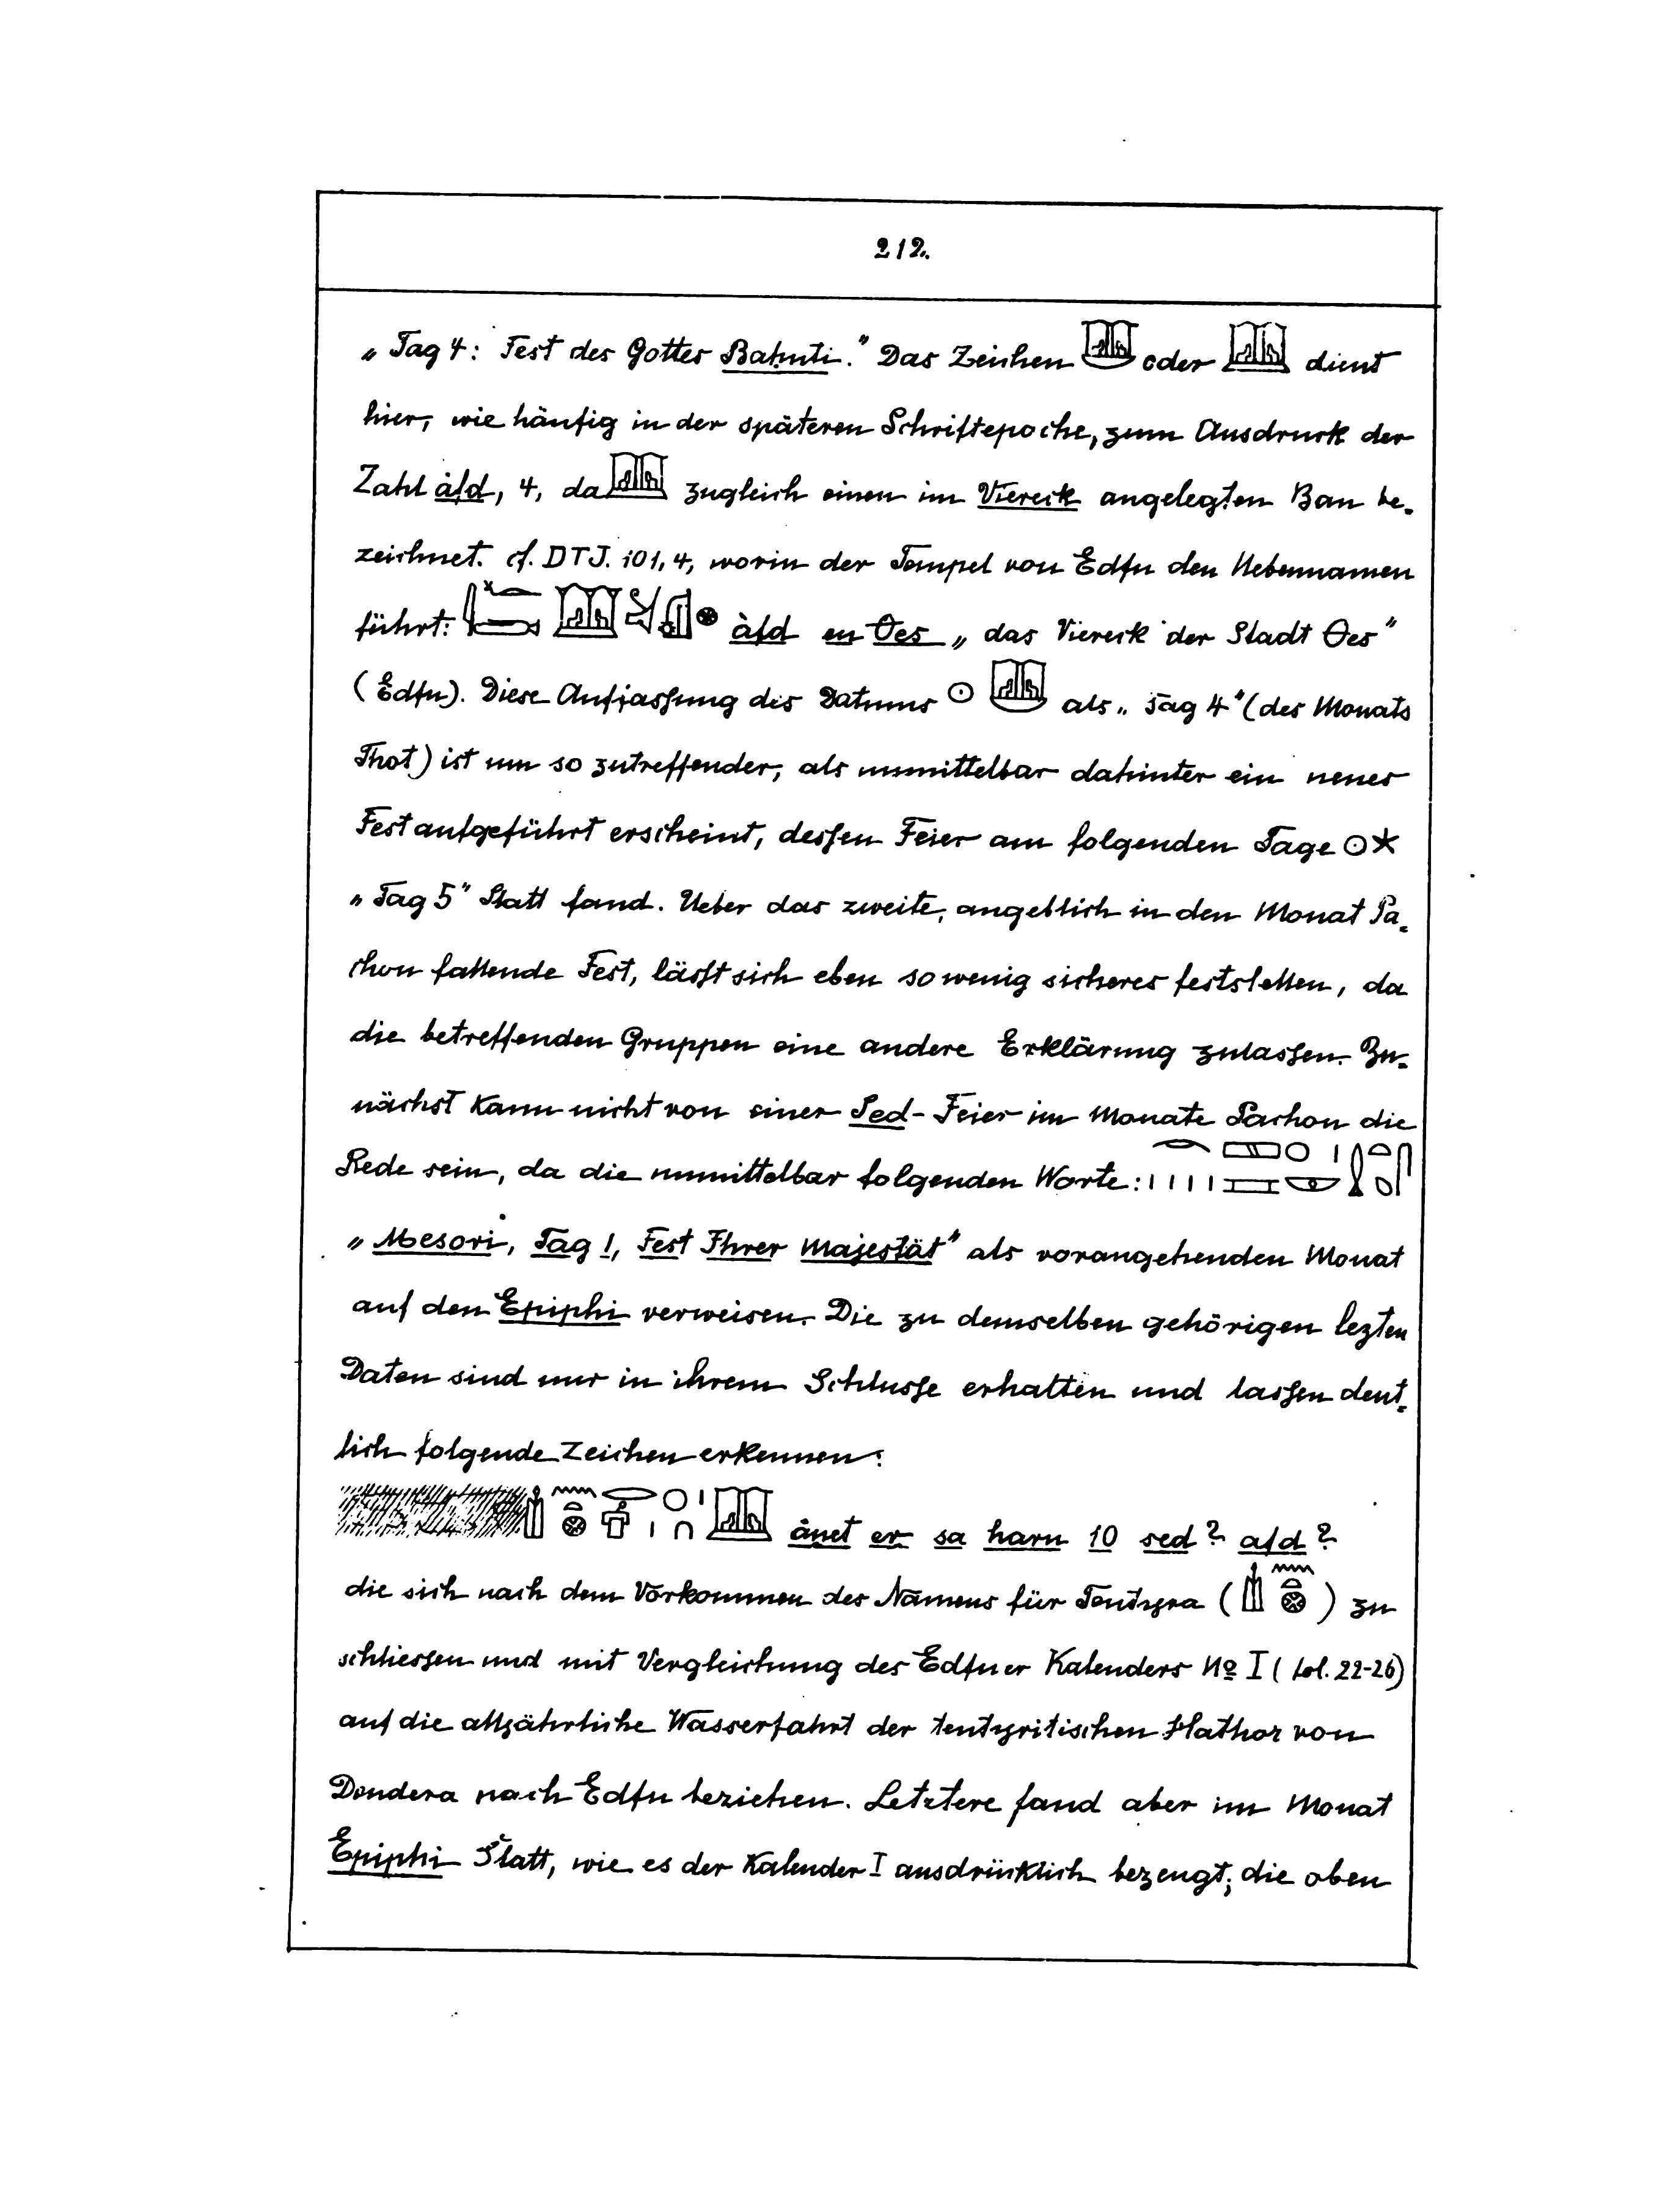 212.
„Tag 4: Fest des Gottes Baḥuti." Das Zeichen oder dient
hier, wie häufig in der späteren Schriftepoche, zum Ausdruck der
Zahl àfd, 4, da zugleich einen im Viereck angelegten Bau be-
zeichnet. cf. DTJ. 101, 4, worin der Tempel von Edfu den Nebennamen
führt: àfd en Θes „das Viereck der Stadt Θes"
(Edfu). Diese Auffassung des Datums ☉ als „Tag 4" (des Monats
Thot) ist um so zutreffender, als unmittelbar dahinter ein neues
Fest aufgeführt erscheint, dessen Feier am folgenden Tage ☉*
„Tag 5" Statt fand. Ueber das zweite, angeblich in den Monat Pa-
chon fallende Fest, lässt sich eben so wenig sicheres feststellen, da
die betreffenden Gruppen eine andere Erklärung zulassen. Zu-
nächst kann nicht von einer Sed-Feier im Monate Pachon die
Rede sein, da die unmittelbar folgenden Worte:
„Mesori, Tag 1, Fest Ihrer Majestät" als vorangehenden Monat
auf den Epiphi verweisen. Die zu demselben gehörigen lezten
Daten sind nur in ihrem Schlusse erhalten und lassen deut-
lich folgende Zeichen erkennen:
ànet er sa haru 10 sed? afd?
die sich nach dem Vorkommen des Namens für Tentyra ( ) zu
schliessen und mit Vergleichung des Edfuer Kalenders Nº I (Col. 22-26)
auf die alljährliche Wasserfahrt der tentyritischen Hathor von
Dendera nach Edfu beziehen. Letztere fand aber im Monat
Epiphi Statt, wie es der Kalender I ausdrücklich bezeugt; die oben